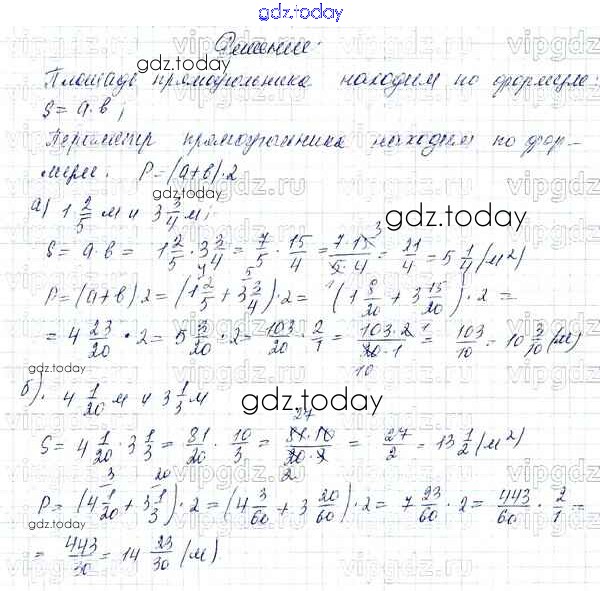 gdz.today
Решение:
Площадь прямоугольника находим по формуле:
S = a·b;
Периметр прямоугольника находим по фор-
муле: P = (a+b)·2
а) 1 2/5 м и 3 3/4 м;
S = a·b = 1 2/5 · 3 3/4 = 7/5 · 15/4 = 7·15/5·4 = 21/4 = 5 1/4 (м²)
P = (a+b)·2 = (1 2/5 + 3 3/4)·2 = (1 8/20 + 3 15/20)·2 =
= 4 23/20 · 2 = 5 3/20 · 2 = 103/20 · 2/1 = 103·2/20·1 = 103/10 = 10 3/10 (м)
б). 4 1/20 м и 3 1/3 м
S = 4 1/20 · 3 1/3 = 81/20 · 10/3 = 81·10/20·3 = 27/2 = 13 1/2 (м²)
P = (4 1/20 + 3 1/3)·2 = (4 3/60 + 3 20/60)·2 = 7 23/60 · 2 = 443/60 · 2/1 =
= 443/30 = 14 23/30 (м)